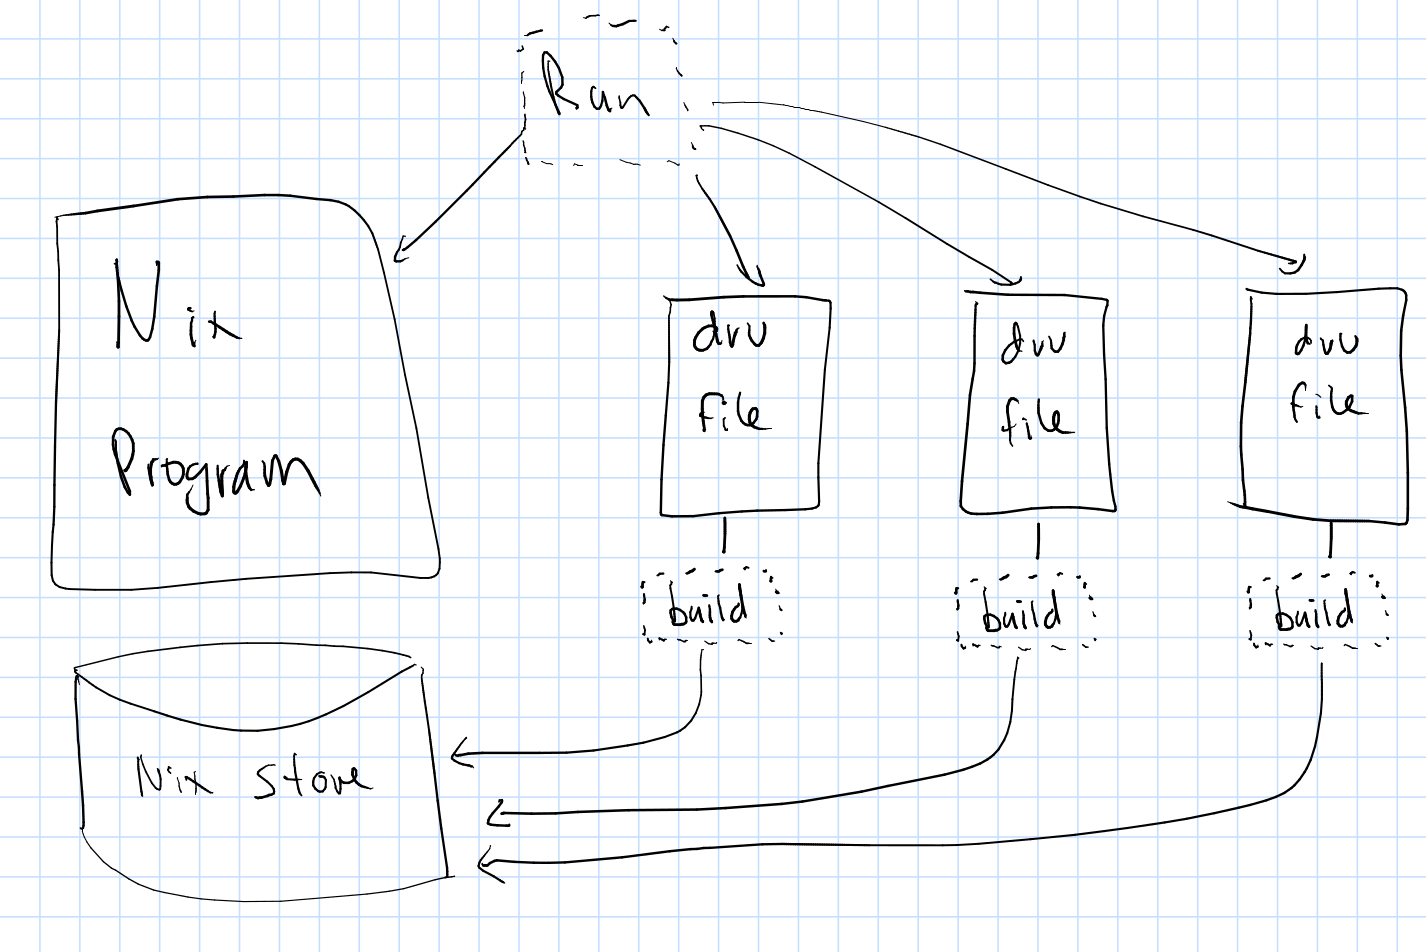 Run
Nix
Program
drv
file
drv
file
drv
file
build
build
build
Nix store